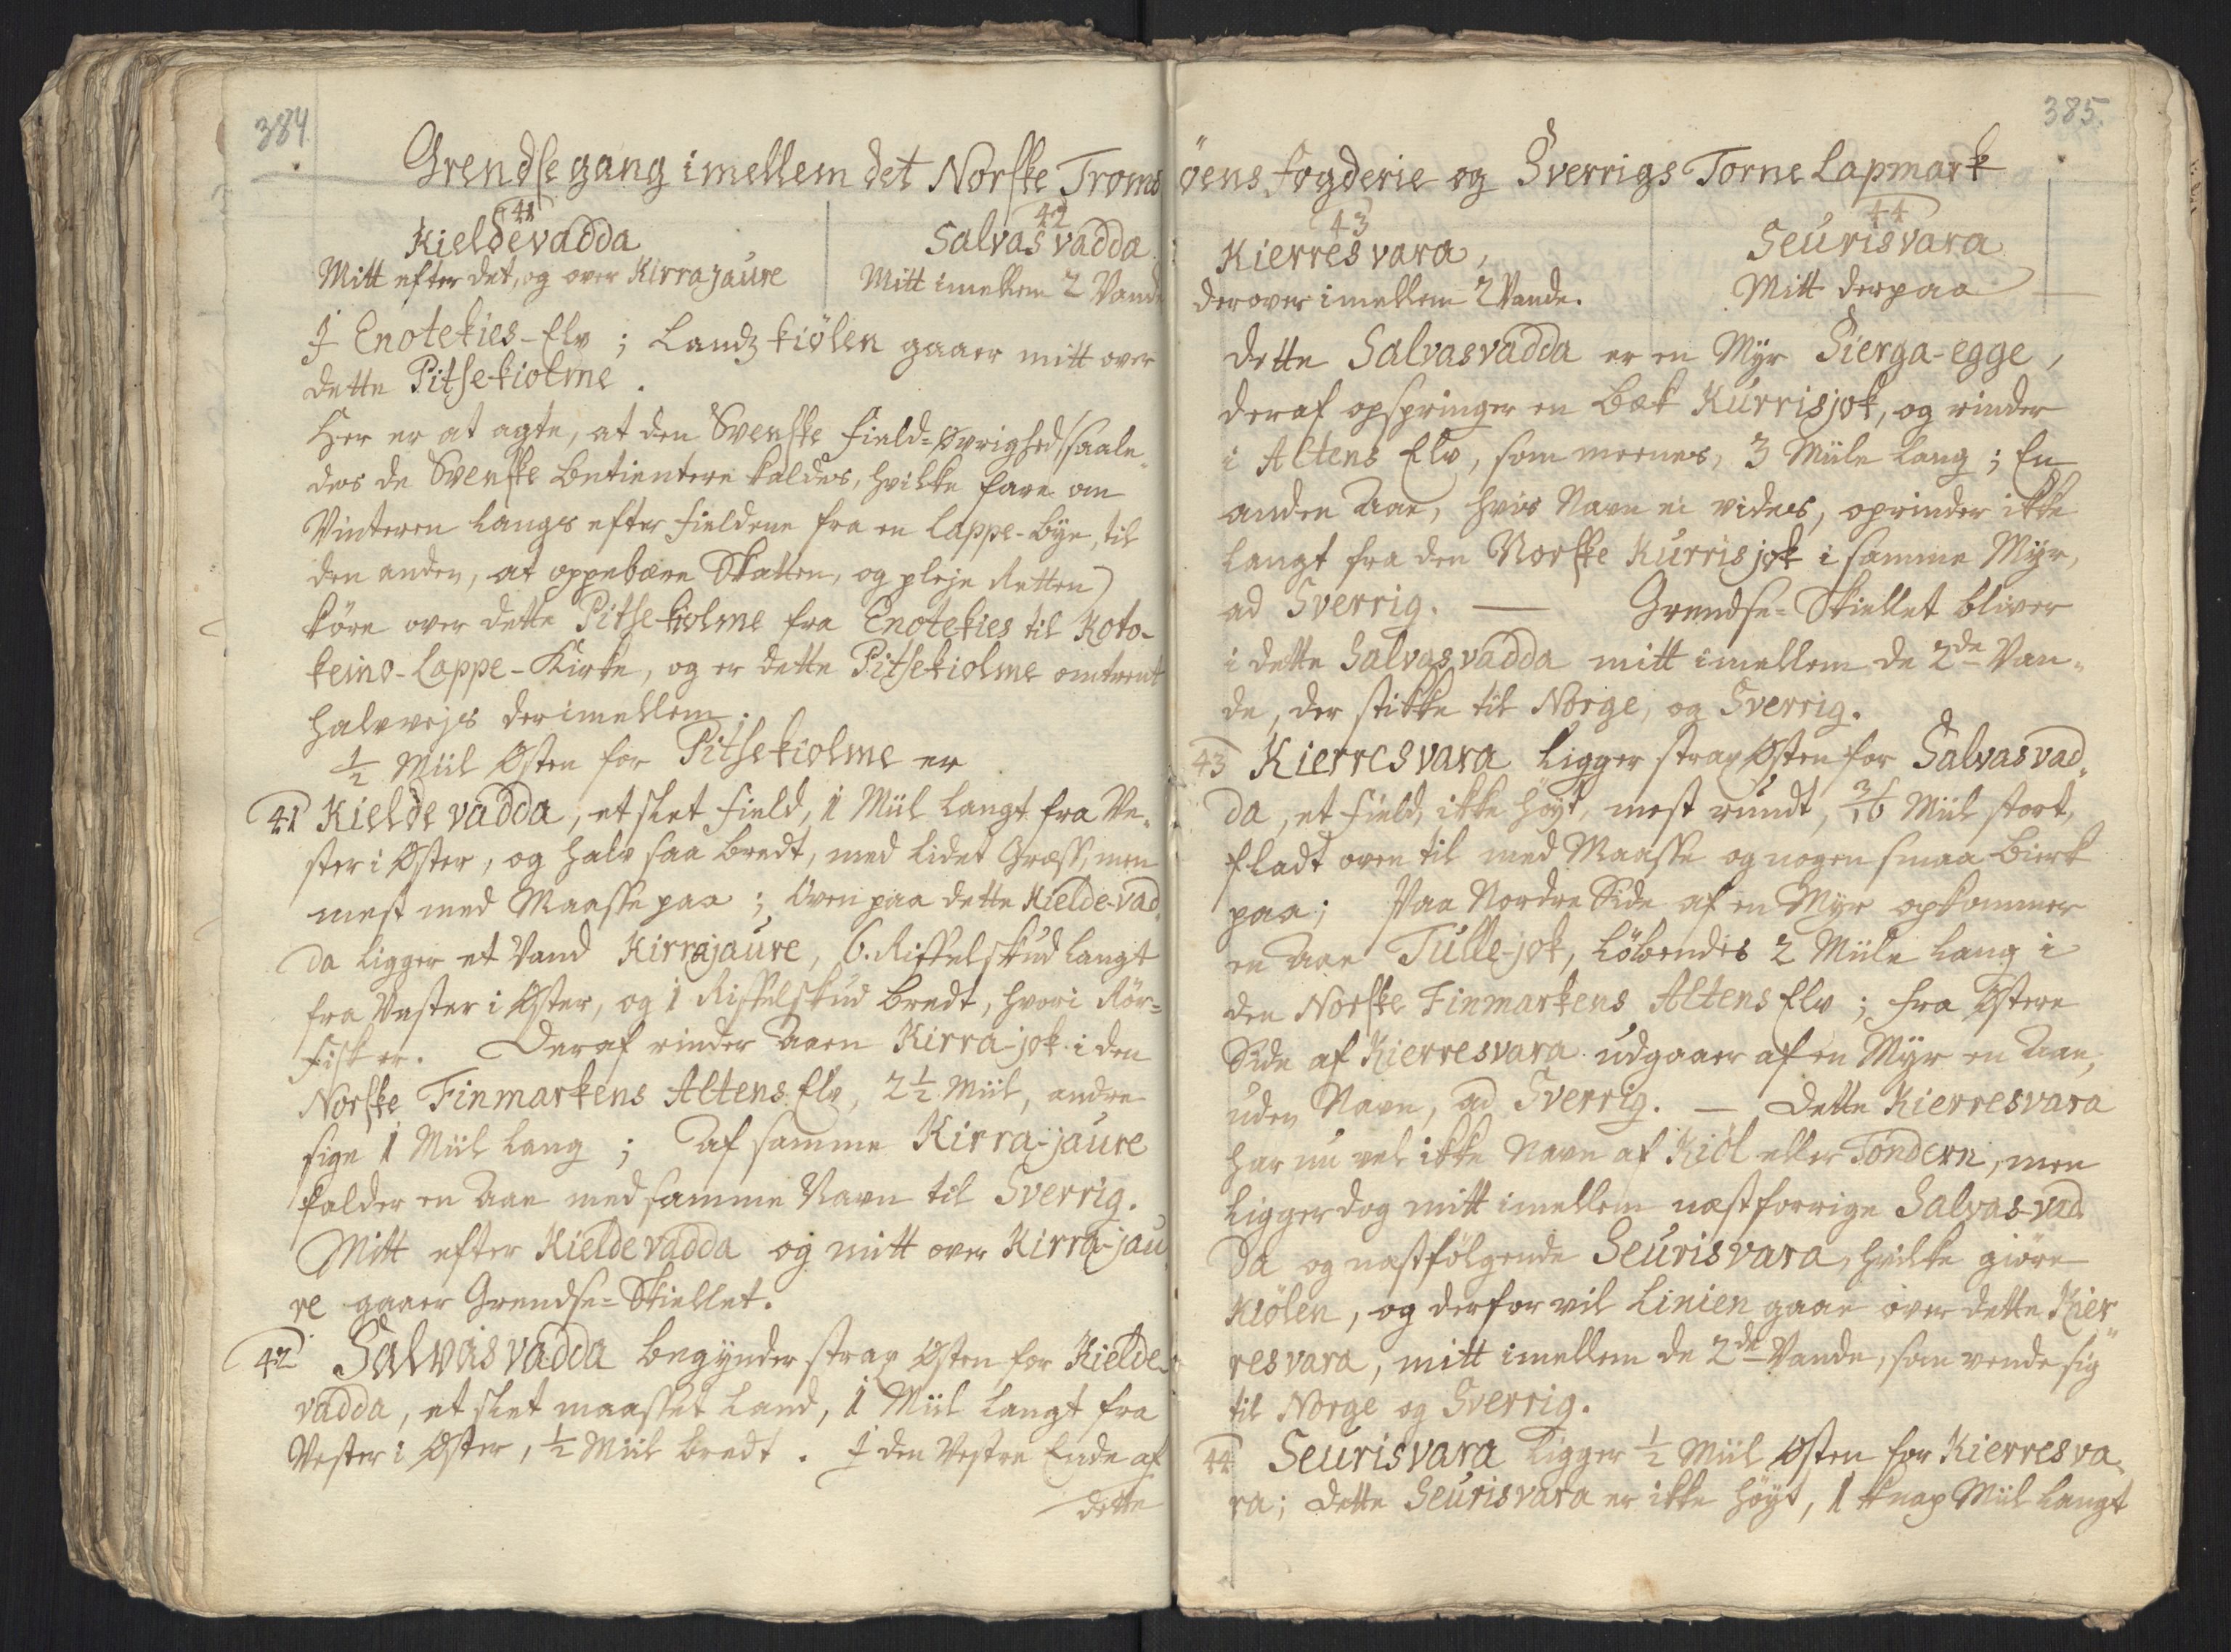 384.
Grendse gang imellem det Norske Troms
41
Kieldevadda
Mitt efter det, og over Kirrajaure
42
Salvasvadda
Mitt imellem 2 Vande
I Enotekies-Elv ; Landz kiölen gaaer mitt over
dette Pitsekiolme.
Her er at agte, at den Svenske Field-Øvrighed /:saale„
des de Svenske Betientere kaldes, hvilke fare om
Vinteren langs efter Fieldene fra en Lappe-Bye, til
den anden, at oppebære Skatten, og pleje Retten)
köre over dette Pitsekiolme fra Enotekies til Koto-
keino-Lappe-Kirke, og er dette Pitsekiolme omtrent
halvvejs derimellem.
½ Miil Østen for Pitsekiolme er
41 Kieldevadda, et slet Field, 1 Miil langt fra Ve„
ster i Øster, og halv saa bredt, med lidet Græss, men
mest med Maasse paa ; Oven paa dette Kielde-vad„
da ligger et Vand Kirrajaure, 6. Riffelskud langt
fra Vester i Øster, og 1 Riffelskud bredt, hvori Rör-
fisk er. Deraf rinder Aaen Kirra-jok i den
Norske Finmarkens Altens Elv, 2½ Miil, andre
sige 1 Miil lang ; Af samme Kirra-jaure
falder en Aae med samme Navn til Sverrig.
Mitt efter Kieldevadda og mitt over Kirra-jau„
re gaaer Grendse-Skiellet.
42 Salvasvadda begynder strax Østen for Kielde„
vadda, et slet maasset Land, 1 Miil langt fra
Vester i Øster, ½ Miil bredt. I den Vestre Ende af
dette
385.
öens Fogderie og Sverrigs Torne Lapmark
43
Kierresvara,
derover imellem 2 Vande.
44
Seurisvara
Mitt derpaa
dette Salvasvadda er en Myr Sierga-egge,
deraf opspringer en Bæk Kurrisjok, og rinder
i Altens Elv, som meenes, 3 Miile lang ; En
anden Aae, hvis Navn ei vides, oprinder ikke
langt fra den Norske Kurrisjok i samme Myr,
ad Sverrig. — Grendse-Skiellet bliver
i dette Salvasvadda mitt imellem de 2de Van„
de, der stikke til Norge, og Sverrig.
43 Kierresvara ligger strax Østen for Salvasvad„
da, et Field, ikke höyt, mest rundt, 3/16 Miil stort,
fladt oven til med Maasse og nogen smaa Birk
paa ; Paa Nordre Side af en Myr opkommer
en Aae Tulle-jok, löbendes 2 Miile lang i
den Norske Finmarkens Altens Elv ; fra Østere
Side af Kierresvara udgaaer af en Myr en Aae,
uden Navn, ad Sverrig. — Dette Kierresvara
har nu vel ikke Navn af Kiöl eller Töndern, men
ligger dog mitt imellem næstforrige Salvas-vad
da og næstfölgende Seurisvara, hvilke giöre
Kiölen, og derfor vil Linien gaae over dette Kier„
resvara, mitt imellem de 2de Vande, som vende sig
til Norge og Sverrig.
44 Seurisvara ligger ½ Miil Østen for Kierresva„
ra ; dette Seurisvara er ikke höyt, 1 knap Miil langt